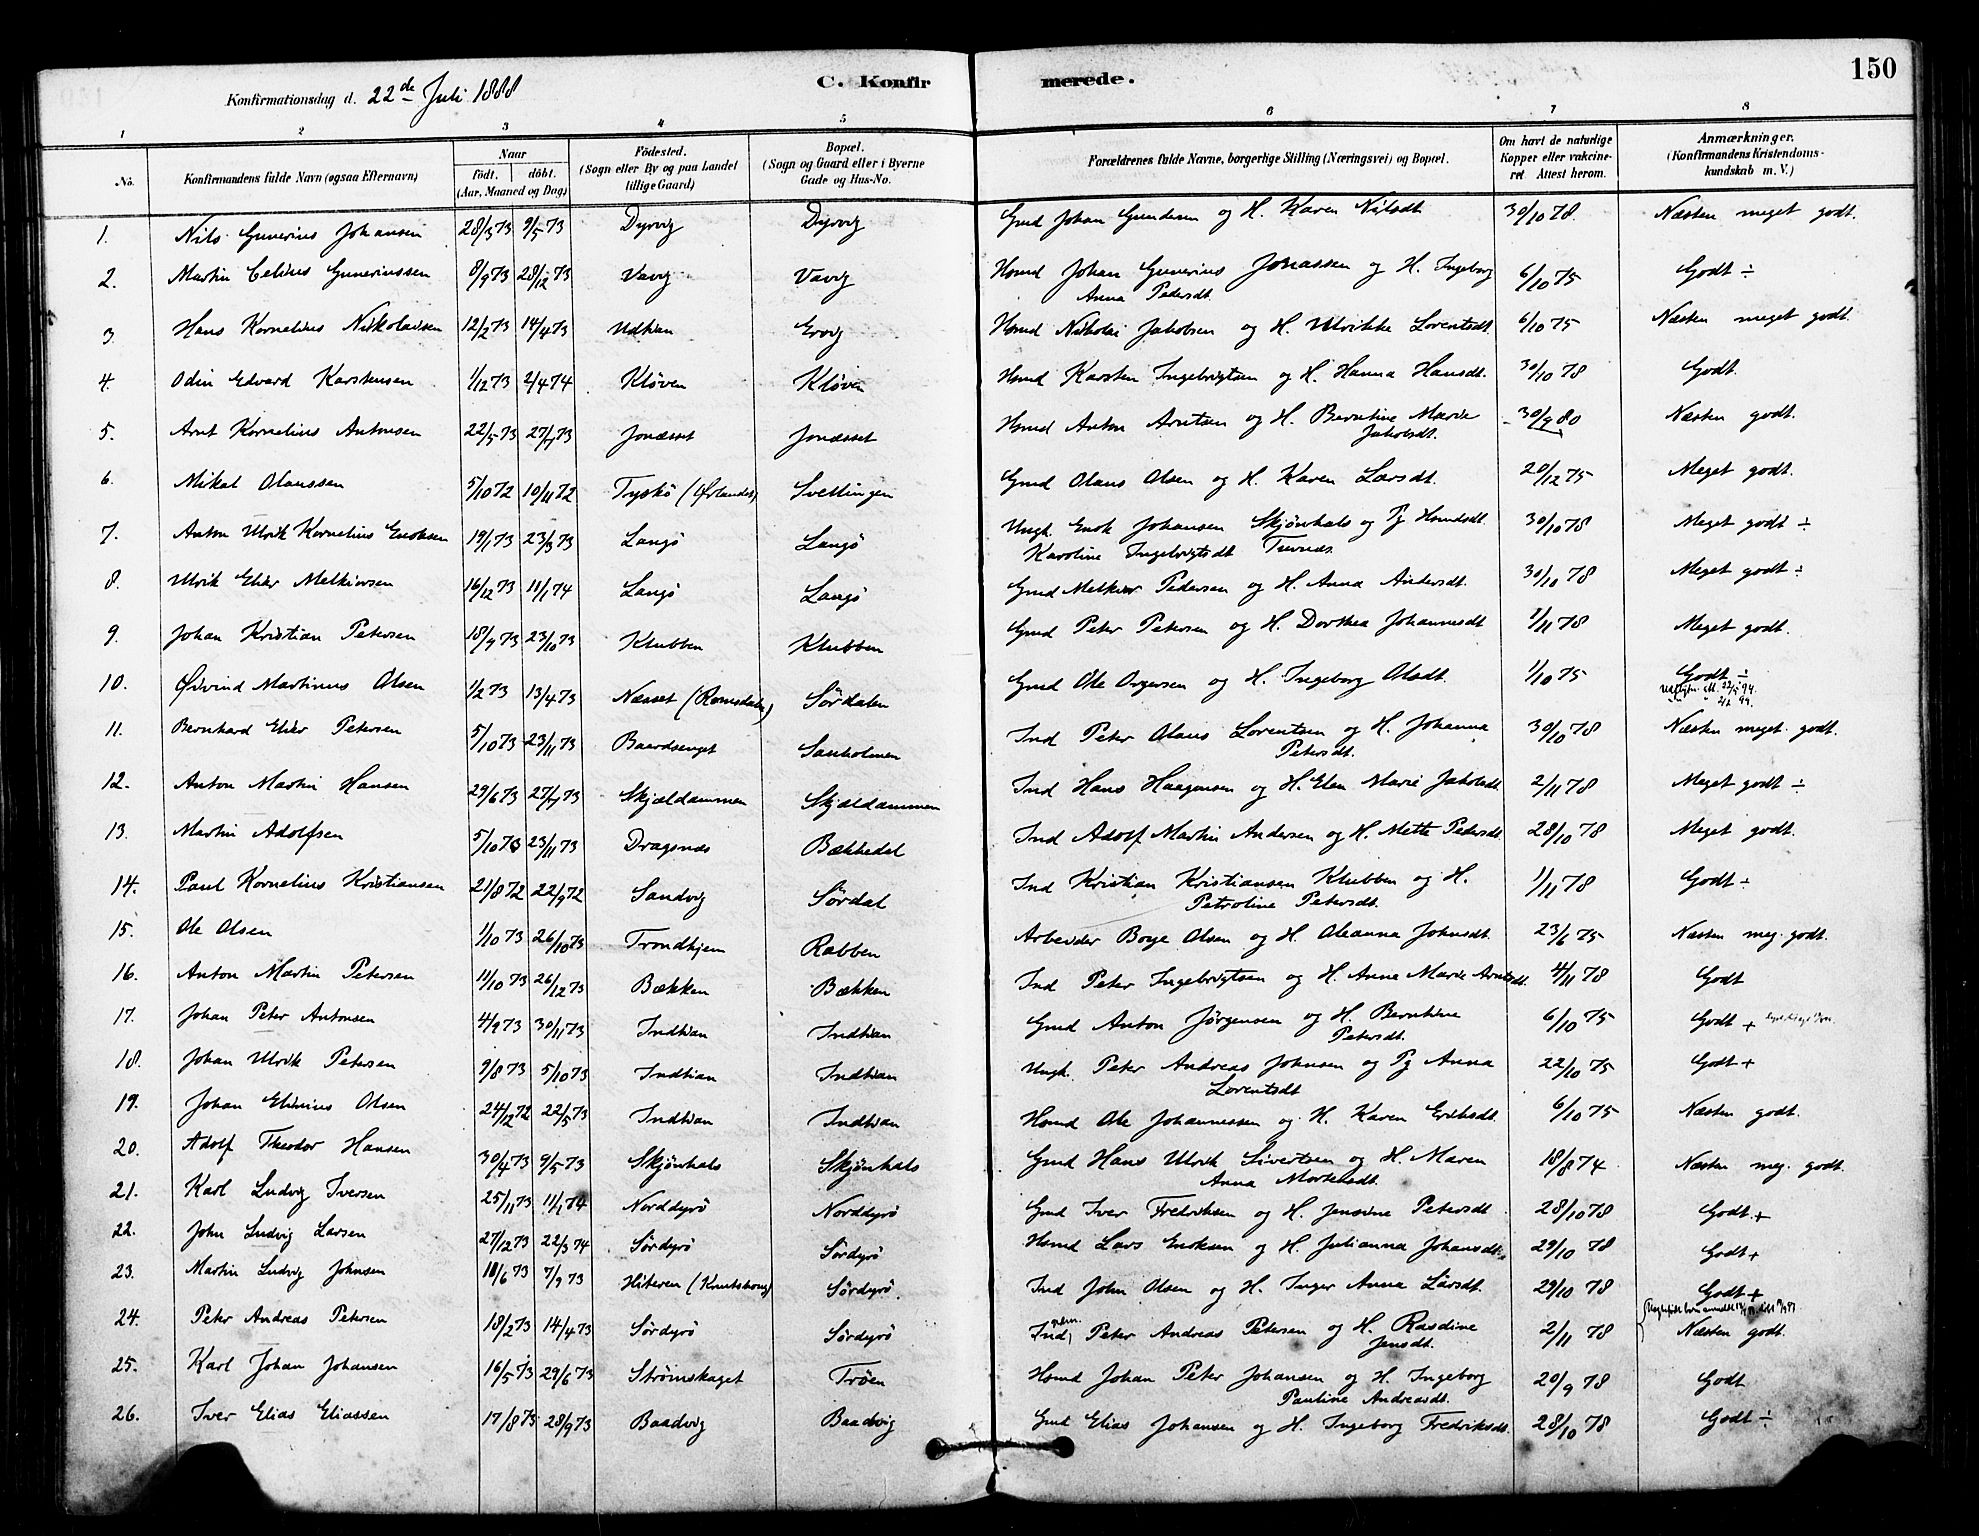 150
C. Konfirmerede.
Konfirmationsdag d. 22de Juli 1888
1 2 3 4 5 6 7 8
No. Konfirmandens fulde Navn (ogsaa Efternavn) Naar födt. döbt. (Aar, Maaned og Dag) Födested. (Sogn eller By og paa Landet tillige Gaard) Bopæl. (Sogn og Gaard eller i Byerne Gade og Hus-No. Forældrenes fulde Navne, borgerlige Stilling (Næringsvei) og Bopæl. Om havt de naturlige Kopper eller vakcineret. Attest herom. Anmærkninger. (Konfirmandens Kristendomskundskab m. V.)
1. Nils Gunerius Johansen 28/3 73 9/5 73 Dyrvig Dyrvig Gmd Johan Gundersen og H. Karen Nilsdt 30/10 78. Næsten meget godt.
2. Martin Celius Guneriussen 8/9 73 28/12 73 Vavig Vavig Hsmd Johan Gunerius Jonassen og H. Ingeborg Anna Pedersdt. 6/10 75 Godt ÷
3. Hans Kornelius Nikolaisen 12/2 73 14/4 73 Udtian Ervig Hsmd Nikolai Jakobsen og H. Ulrikke Lorentsdt. 6/10 75 Næsten meget godt.
4. Odin Edvard Karstensen 1/12 73 2/4 74 Kløven Kløven Hsmd Karsten Ingebrigtsen og H. Hanna Hansdt. 30/10 78 Godt.
5. Arnt Kornelius Antonsen 22/5 73 27/7 73 Jonæsset Jonæsset Hsmd Anton Arntsen og H. Berntine Marie Jakobsdt. 30/9 80 Næsten godt.
6. Mikal Olaussen 5/10 72 10/11 72 Tyskø (Ørlandet) Svellingen Gmd Olaus Olsen og H. Karen Larsdt. 20/12 75 Meget godt.
7. Anton Ulrik Kornelius Enoksen 19/1 73 23/3 73 Langö Langö Ungk. Enok Johansen Skjönhals og Pg Hsmdsdt. Karoline Ingebrigtsdt 30/10 78 Meget godt ÷
8. Ulrik Elier Melkiorsen 16/12 73 11/1 74 Langö Langö Gmd Melkior Pedersen og H. Anna Andersdt. 30/10 78 Meget godt ÷
9. Johan Kristian Petersen 18/9 73 23/10 73 Klubben Klubben Gmd Peter Petersen og H. Dorthea Johannesdt 1/11 78 Meget godt.
10. Øivind Martinus Olsen 1/2 73 13/4 73 Næsset (Romsdalen) Sördalen Gmd Ole Orgersen og H. Ingeborg Olsdt. 1/10 75 Godt ÷
11. Bernhard Elier Petersen 5/10 73 23/11 73 Baardsenget Sauholmen Ind Peter Olaus Lorentsen og H. Johanna Petersdt. 30/10 78 Næsten meget godt.
12. Anton Martin Hansen 29/6 73 27/7 73 Skjældammen Skjældammen Ind Hans Haagensen og H. Elen Marie Jakobsdt 2/11 78 Meget godt ÷
13. Martin Adolfsen 5/10 73 23/11 73 Dragsnæs Bækkedal Ind Adolf Martin Andersen og H. Mette Pedersdt. 28/10 78 Meget godt.
14. Paul Kornelius Kristiansen 21/8 72 22/9 72 Sandvig Sördal Ind Kristian Kristiansen Klubben og H. Petroline Petersdt. 1/11 78 Godt ÷
15. Ole Olsen 1/10 73 26/10 73 Trondhjem Rabben Arbeider Borge Olsen og H. Oleanna Johnsdt. 23/6 75 Næsten meg. godt.
16. Anton Martin Petersen 11/10 73 26/12 73 Bækken Bækken Ind Peter Ingebrigtsen og H. Anne Marie Arntsdt. 4/11 78 Godt
17. Johan Peter Antonsen 4/9 73 30/11 73 Indtian Indtian Gmd Anton Jörgensen og H. Berntine Petersdt. 6/10 75 Godt +
18. Johan Ulrik Petersen 9/8 73 5/10 73 Indtian Indtian Ungk. Peter Andreas Johnsen og Pg Anna Lorentsdt 22/10 75 Godt +
19. Johan Edinius Olsen 24/12 72 22/5 73 Indtian Indtian Hsmd Ole Johannessen og H. Karen Eriksdt. 6/10 75 Næsten godt.
20. Adolf Theodor Hansen 30/4 73 9/5 73 Skjönhals Skjönhals Gmd Hans Ulrik Sivertsen og H. Maren Anna Mortensdt. 18/8 74 Næsten meg. godt.
21. Karl Ludvig Iversen 25/11 73 11/1 74 Norddyrö Norddyrö Gmd Iver Fredriksen og H. Jensine Petersdt 28/10 78 Godt. +
22. John Ludvig Larsen 27/12 73 22/3 74 Sördyrö Sördyrö Hsmd Lars Enoksen og H. Julianna Johansdt. 29/10 78 Godt +
23. Martin Ludvig Johnsen 18/6 73 7/9 73 Hiteren (Knutshoug) Sördyrö. Ind John Olsen og H. Inger Anna Larsdt. 29/10 78 Godt +
24. Peter Andreas Petersen 18/2 73 14/4 73 Sördyrö Sördyrö Ind Peter Andreas Petersen og H. Rasdine Jensdt. 2/11 78 Næsten godt.
25. Karl Johan Johansen 16/5 73 29/6 73 Strömskaget Tröen Hsmd Johan Peter Johansen og H. Ingeborg Pauline Andreasdt. 20/9 78 Godt
26. Iver Elias Eliassen 17/8 73 28/9 73 Baadvig Baadvig Gmd Elias Johansen og H. Ingeborg Fredriksdt. 28/10 78 Godt ÷